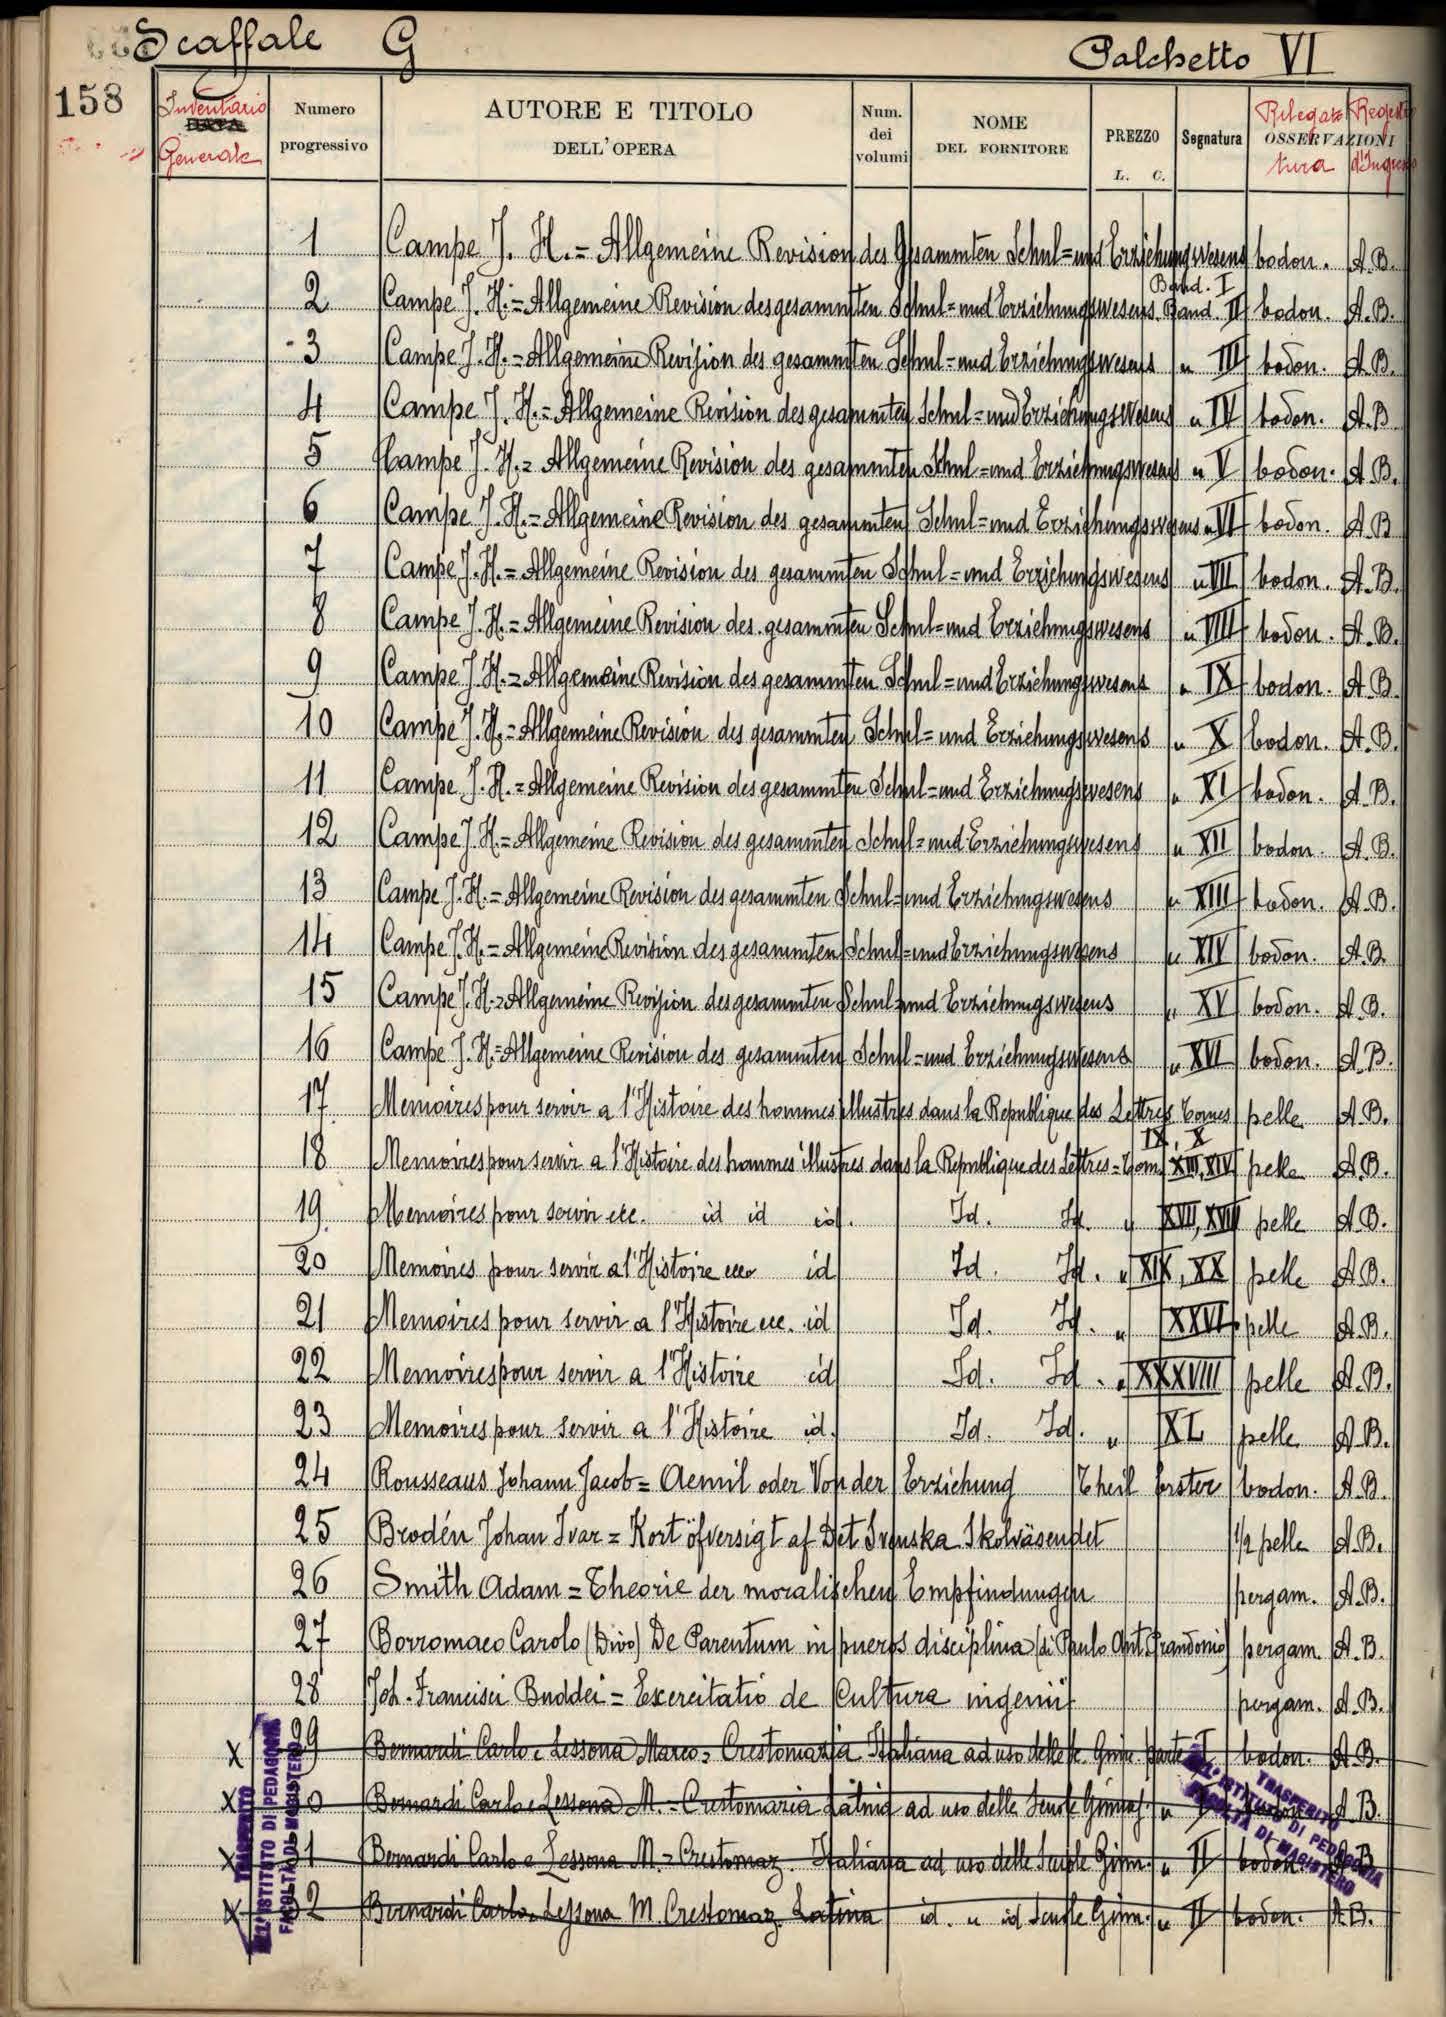 Scaffale G Palchetto VI
158
Inventario Generale
DATA
Numero progressivo
AUTORE E TITOLO DELL'OPERA
Num. dei volumi
NOME DEL FORNITORE
PREZZO L. C.
Segnatura
OSSERVAZIONI
Rilegatura
Registro d'Ingresso
1 Campe J. H. = Allgemeine Revision des Gesammten Schul = und Erziehungswesens Band. I bodon. A.B.
2 Campe J. H. = Allgemeine Revision des gesammten Schul = und Erziehungswesens Band. II bodon. A.B.
3 Campe J. H. = Allgemeine Revision des gesammten Schul = und Erziehungswesens " III bodon. A.B.
4 Campe J. H. = Allgemeine Revision des gesammten Schul = und Erziehungswesens " IV bodon. A.B
5 Campe J. H. = Allgemeine Revision des gesammten Schul = und Erziehungswesens " V bodon. A.B.
6 Campe J. H. = Allgemeine Revision des gesammten Schul = und Erziehungswesens " VI bodon. A.B
7 Campe J. H. = Allgemeine Revision des gesammten Schul = und Erziehungswesens " VII bodon. A.B.
8 Campe J. H. = Allgemeine Revision des gesammten Schul = und Erziehungswesens " VIII bodon. A.B.
9 Campe J. H. = Allgemeine Revision des gesammten Schul = und Erziehungswesens " IX bodon. A.B.
10 Campe J. H. = Allgemeine Revision des gesammten Schul = und Erziehungswesens " X bodon. A.B.
11 Campe J. H. = Allgemeine Revision des gesammten Schul = und Erziehungswesens " XI bodon. A.B.
12 Campe J. H. = Allgemeine Revision des gesammten Schul = und Erziehungswesens " XII bodon. A.B.
13 Campe J. H. = Allgemeine Revision des gesammten Schul = und Erziehungswesens " XIII bodon. A.B.
14 Campe J. H. = Allgemeine Revision des gesammten Schul = und Erziehungswesens " XIV bodon. A.B.
15 Campe J. H. = Allgemeine Revision des gesammten Schul = und Erziehungswesens " XV bodon. A.B.
16 Campe J. H. = Allgemeine Revision des gesammten Schul = und Erziehungswesens " XVI bodon. A.B.
17 Memoires pour servir a l'Histoire des hommes illustres dans la Republique des Lettres Tomes IX, X pelle A.B.
18 Memoires pour servir a l'Histoire des hommes illustres dans la Republique des Lettres = Tom. XIII, XIV pelle A.B.
19 Memoires pour servir ecc. id id id. Id. Id. " XVII, XVIII pelle A.B.
20 Memoires pour servir a l'Histoire ecc. id Id. Id. " XIX, XX pelle A.B.
21 Memoires pour servir a l'Histoire ecc. id Id. Id. " XXVI. pelle A.B.
22 Memoires pour servir a l'Histoire id Id. Id. " XXXVIII pelle A.B.
23 Memoires pour servir a l'Histoire id. Id. Id. " XL pelle A.B.
24 Rousseaus Johann Jacob = Aemil oder Von der Erziehung Theil Erster bodon. A.B.
25 Brodén Johan Ivar = Kort öfversigt af Det Svenska Skolväsendet 1/2 pelle A.B.
26 Smith Adam = Theorie der moralischen Empfindungen pergam. A.B.
27 Borromaeo Carolo (Divo) De Parentum in pueros disciplina (di Paulo Ant. Prandonio) pergam. A.B.
28 Joh. Francisci Buddei = Exercitatio de Cultura ingenii pergam. A.B.
X 29 Bernardi Carlo e Lessona Marco = Crestomazia Italiana ad uso delle Sc. Ginn. parte I bodon. A.B.
X 30 Bernardi Carlo e Lessona M. = Crestomazia Latina ad uso delle Scuole Ginnas. " I bodon A.B.
X 31 Bernardi Carlo e Lessona M. = Crestomaz. Italiana ad uso delle Scuole Ginn. " II bodon. A.B
X 32 Bernardi Carlo e Lessona M. Crestomaz Latina id. " id Scuole Ginn. " II bodon. A.B.
TRASFERITO
ALL'ISTITUTO DI PEDAGOGIA
FACOLTA DI MAGISTERO
TRASFERITO
ALL'ISTITUTO DI PEDAGOGIA
FACOLTA DI MAGISTERO